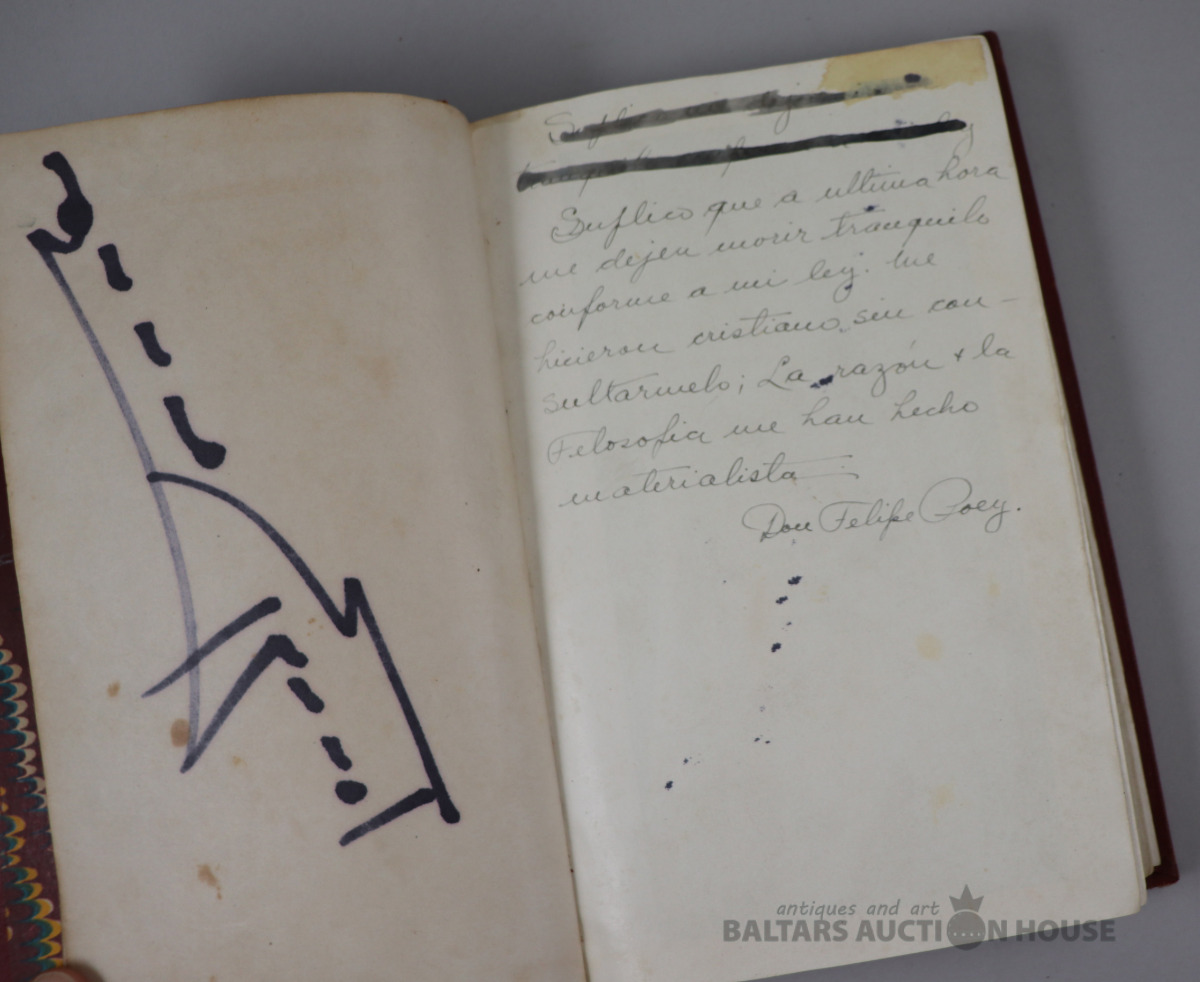 Suplico
Suplico que a ultima hora
me dejen morir tranquilo
conforme a mi ley. Me
hicieron cristiano sin con-
sultarmelo; La razón & la
Felosofia me han hecho
materialista
Don Felipe Poey.
antiques and art
BALTARS AUCTION HOUSE